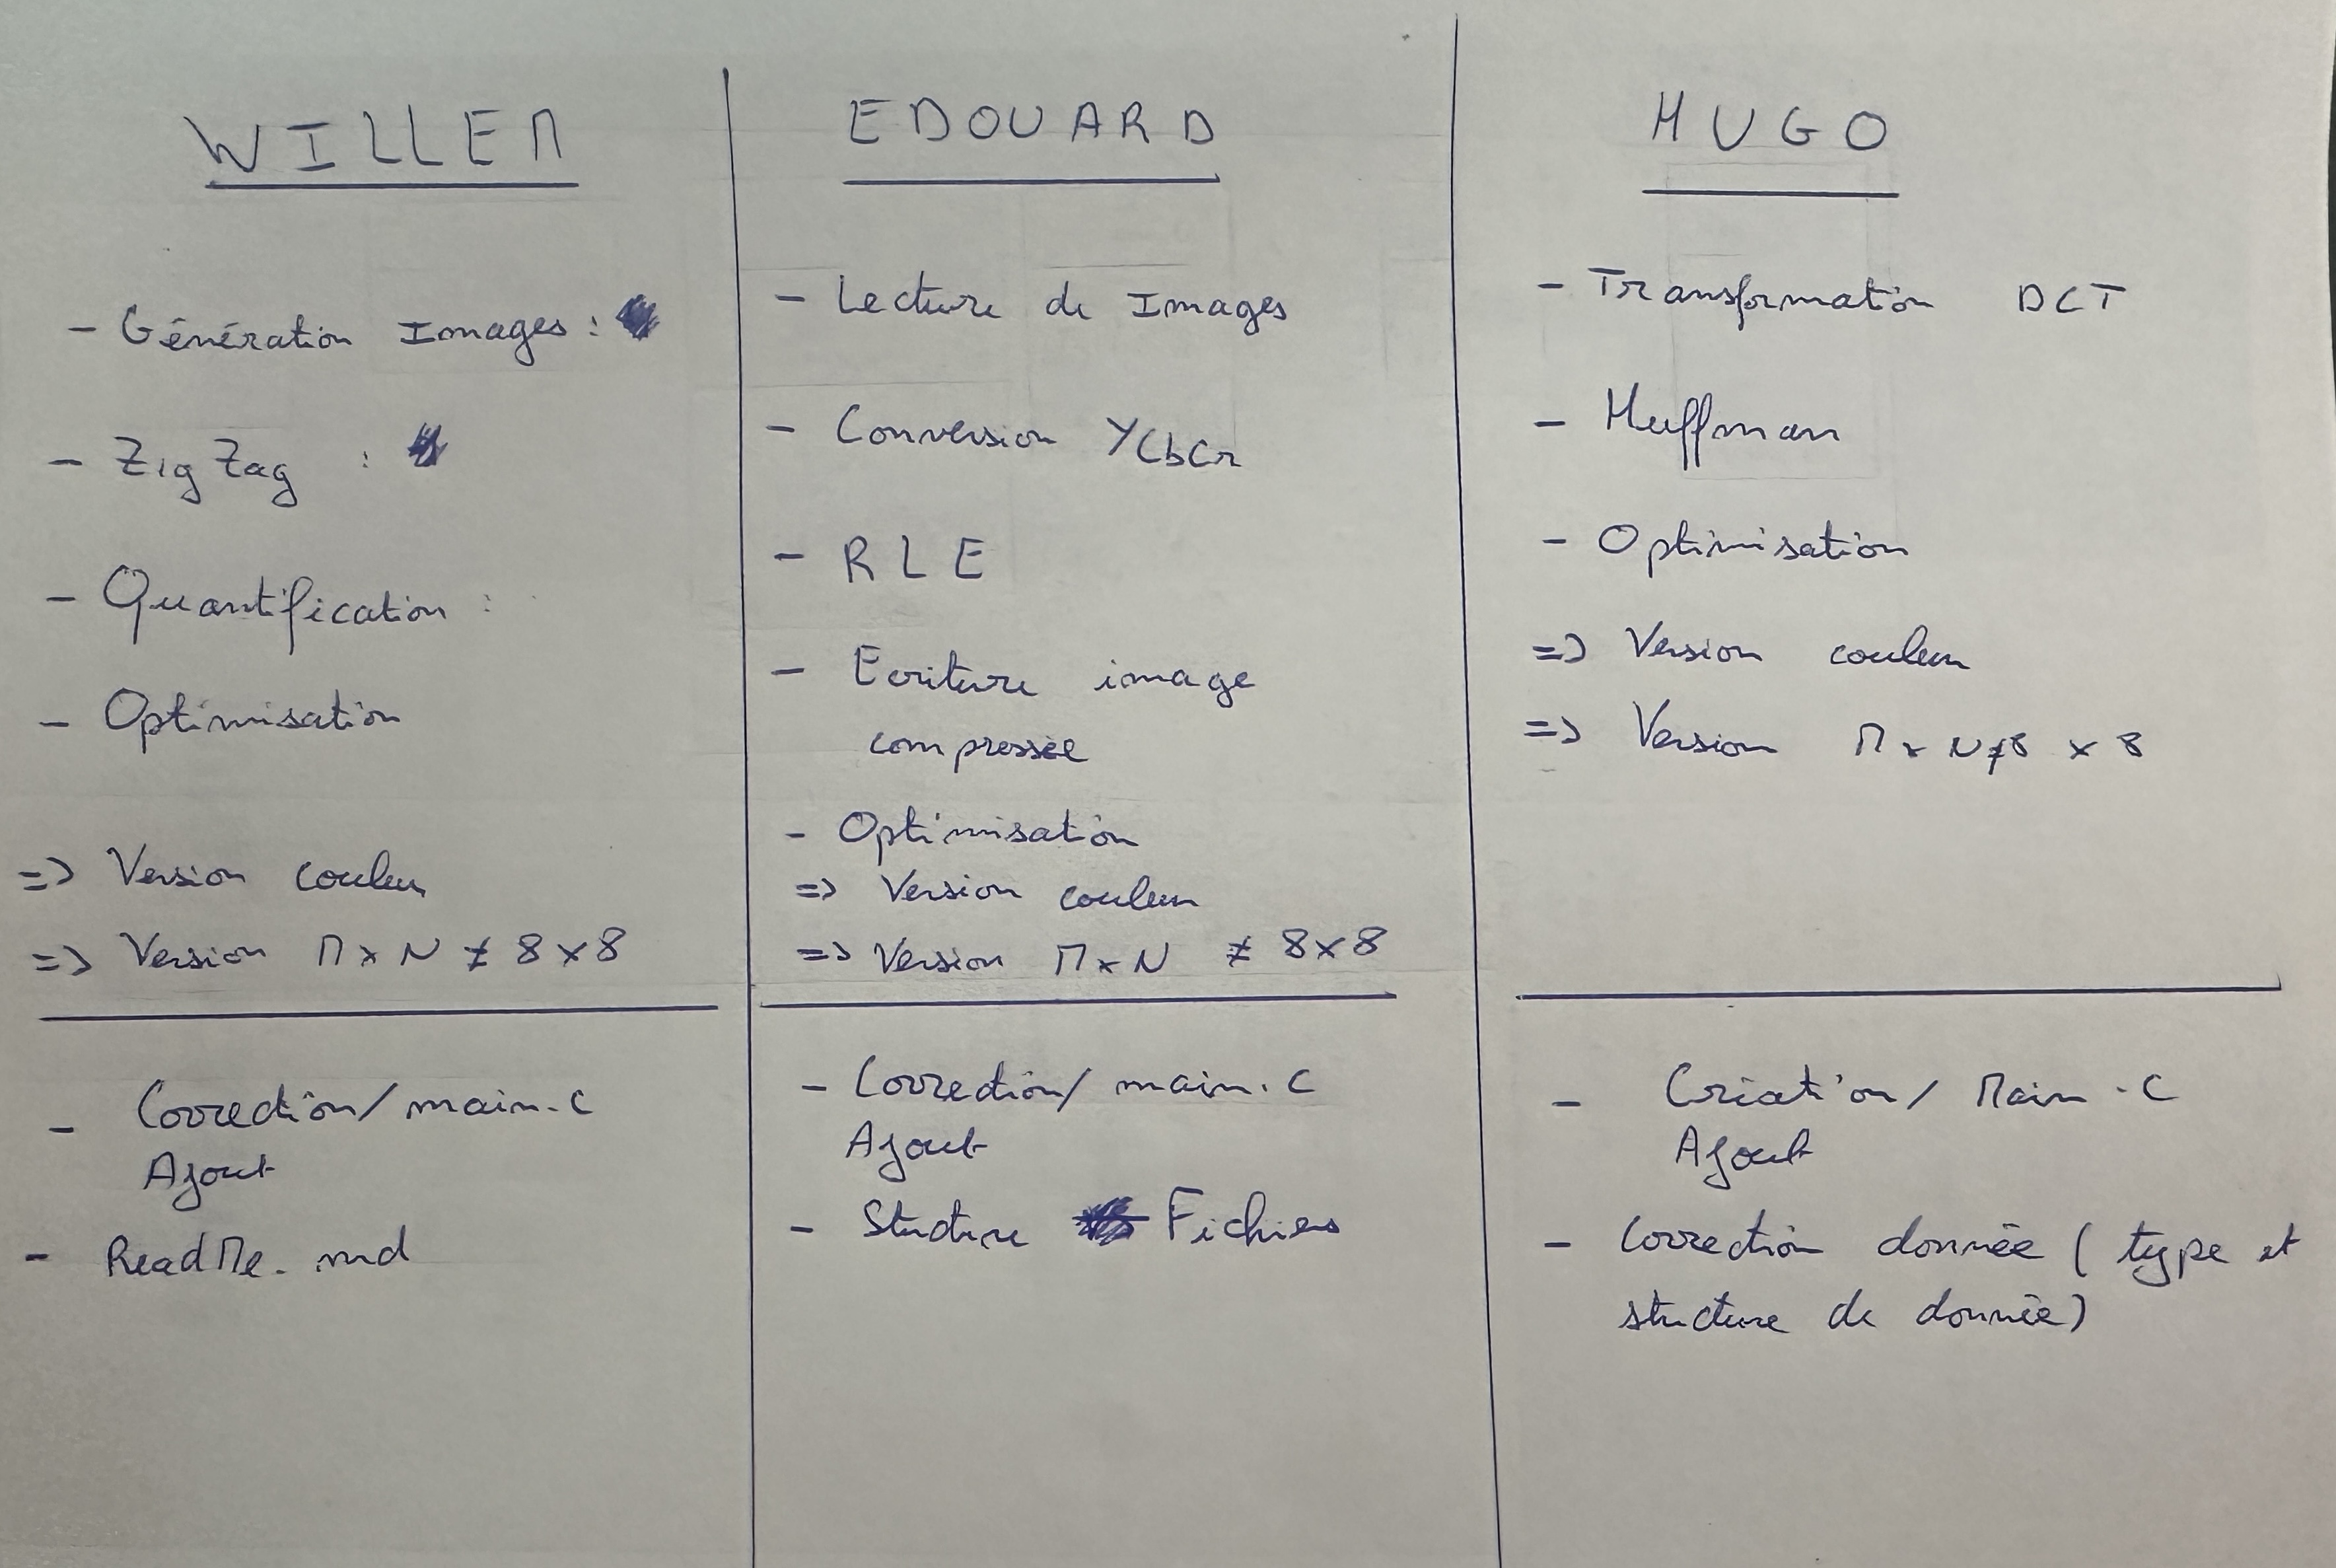 WILLEM
- Génération Images :
- Zig Zag :
- Quantification :
- Optimisation
=> Version couleur
=> Version M x N ≠ 8 x 8
- Correction/ main.c
Ajout
- ReadMe.md
EDOUARD
- Lecture de Images
- Conversion YCbCr
- RLE
- Ecriture image
compressée
- Optimisation
=> Version couleur
=> Version M x N ≠ 8 x 8
- Correction/ main.c
Ajout
- Structure Fichiers
HUGO
- Transformation DCT
- Huffman
- Optimisation
=> Version couleur
=> Version M x N ≠ 8 x 8
- Création/ Main.c
Ajout
- Correction donnée ( type et
structure de donnée)